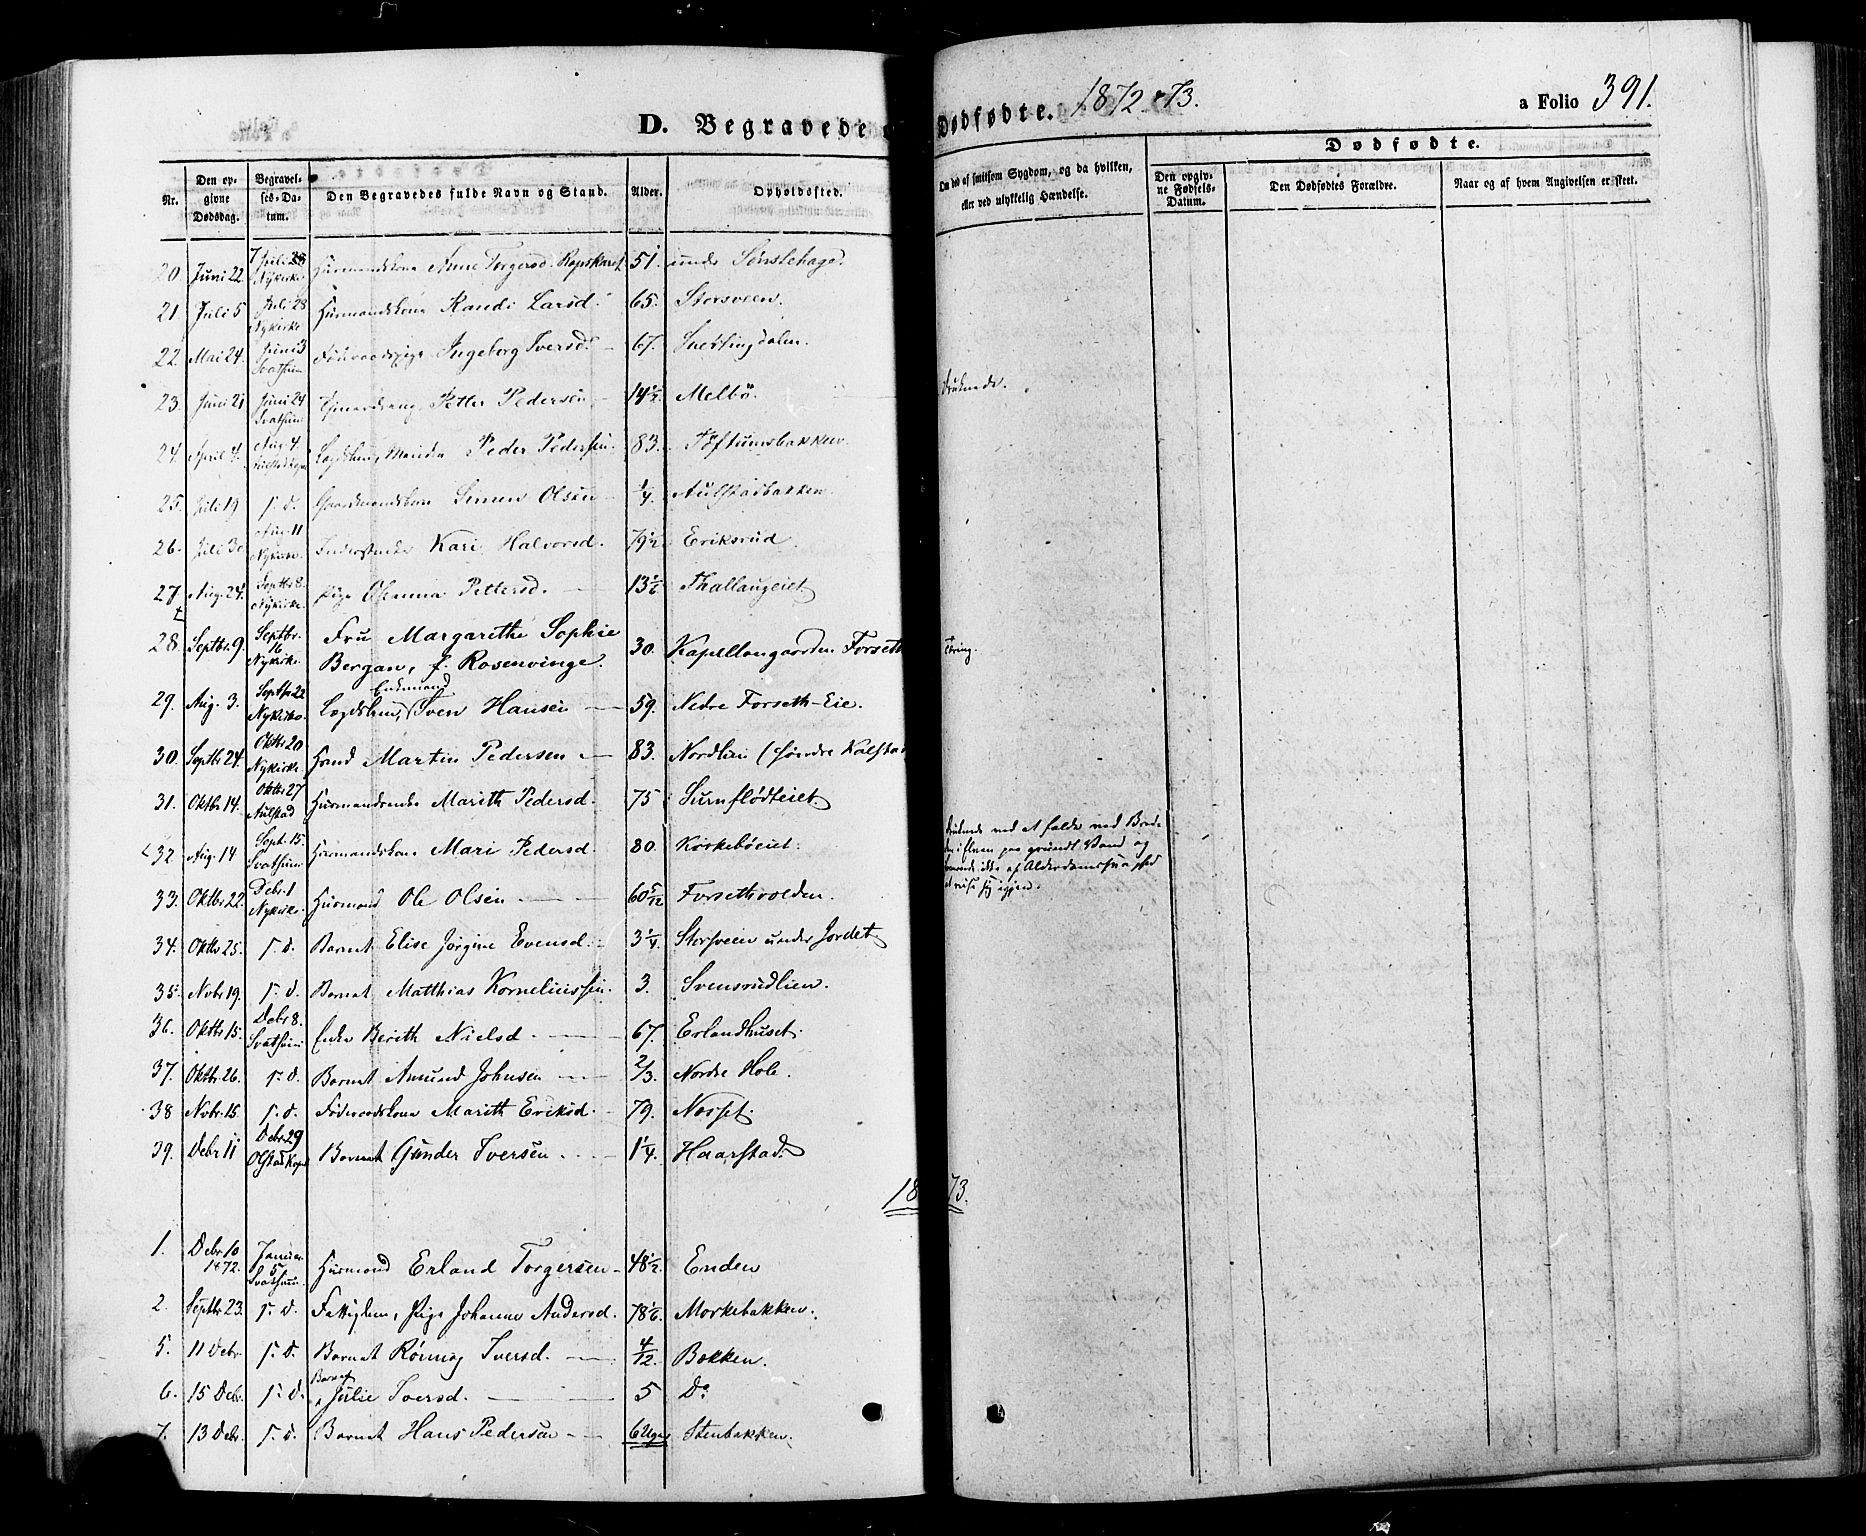 D. Begravede
Dødfødte. 1872-73.
a Folio 391.
Nr.
Den op-
givne
Dødsdag.
Begravel-
ses-Da-
tum.
Den Begravedes fulde Navn og Stand.
Alder.
Opholdssted.
Om død af smitsom Sygdom, og da hvilken,
eller ved ulykkelig Hændelse.
Dødfødte.
Den opgiv-
ne Fødsels-
Datum.
Den Dødfødtes Forældre.
Naar og af hvem Angivelsen er skeet.
20. Juni 22. Juli 28 Nykirke Huusmandskone Anne Torgersd. 51. under
21 Juli 5 Juli 28 Nykirke Huusmandskone Randi Larsd. 65. Storsveen.
22. Mai 24. Juni 3 Svatsum Ingeborg Iversd. 67. Snertingdalen.
23. Juni 21 Juni 24 Svatsum Petter Pedersen 14 1/2 Melbö.
24. April 4. Aug 4. Lægdslem, Peder Pedersen. 83. Töftumsbakken.
25. Juli 19 s. d. Gaardmandsbarn Simen Olsen 1/4. Aulstadbakken.
26. Juli 30 Aug 11 Nykirke. Kari Halvorsd. 79 1/2 Eriksrud.
27 Aug. 24. Septbr 8. Nykirke. Pige Oleanna Pettersd. 13 1/2 Thallaugeiet
28. Septbr. 9. Septbr. 16 Nykirke. Fru Margarethe Sophie
Bergan, f. Rosenvinge. 30. Kapellangaarden Forseth Tæring.
29. Aug. 3. Septbr 22 Nykirke. Lægdslem, Enkemand Sven Hansen 59. Nedre Forseth-Eie.
30. Septbr 24. Oktbr 20 Nykirke. Martin Pedersen 83. Nordlien (söndre Kalstad
31. Oktbr 14. Oktbr 27 Aulstad Huusmandsenke Marith Pedersd. 75 Surnflödteiet.
32 Aug. 14 Sept. 15. Svatsum Huusmandskone Mari Pedersd. 80. Kirkeböeiet.
33. Oktbr 22. Debr. 1 Nykirke. Huusmand Ole Olsen 60 5/12 Forsethvolden.
34. Oktbr 25. s. d. Barnet Elise Jörgine Evensd. 3 1/4. Storsveen under Jordet
35. Novbr 19. s. d. Barnet Matthias Korneliussen. 3. Svensrudlien.
36. Oktbr 15. Debr 8. Svatsum Enke Berith Nielsd. 67. Erlandhuset.
37. Oktbr 26. s. d. Barnet Amund Johnsen 2/3. Nordre Hole.
38 Novbr. 15. s. d. Föderaadskone Marith Eriksd. 79. Nosset.
39. Debr 11 Debr 29 Olstad Kapel Barnet Gunder Iversen. 1 1/4. Haarstad.
Druknede.
ved at falde ned
i Elven paa grundt Vand og
ikke af Alderdomssvaghed
at reise sig igjen.
1873.
1. Debr 10 1872. Januar 5 Svatsum. Huusmand Erland Torgersen 48 1/2. Enden
2. Septbr 23. s. d. Fattiglem, Pige Johanne Andersd. 78 1/2. Morkebakken.
5. 11 Debr. s. d. Barnet Rönnog Iversd. 4/12. Bakken.
6. 15 Debr. s. d. Barnet Julie Iversd. 5 Do
7. 13 Debr. s. d. Barnet Hans Pedersen 6 Uger Stenbakken.